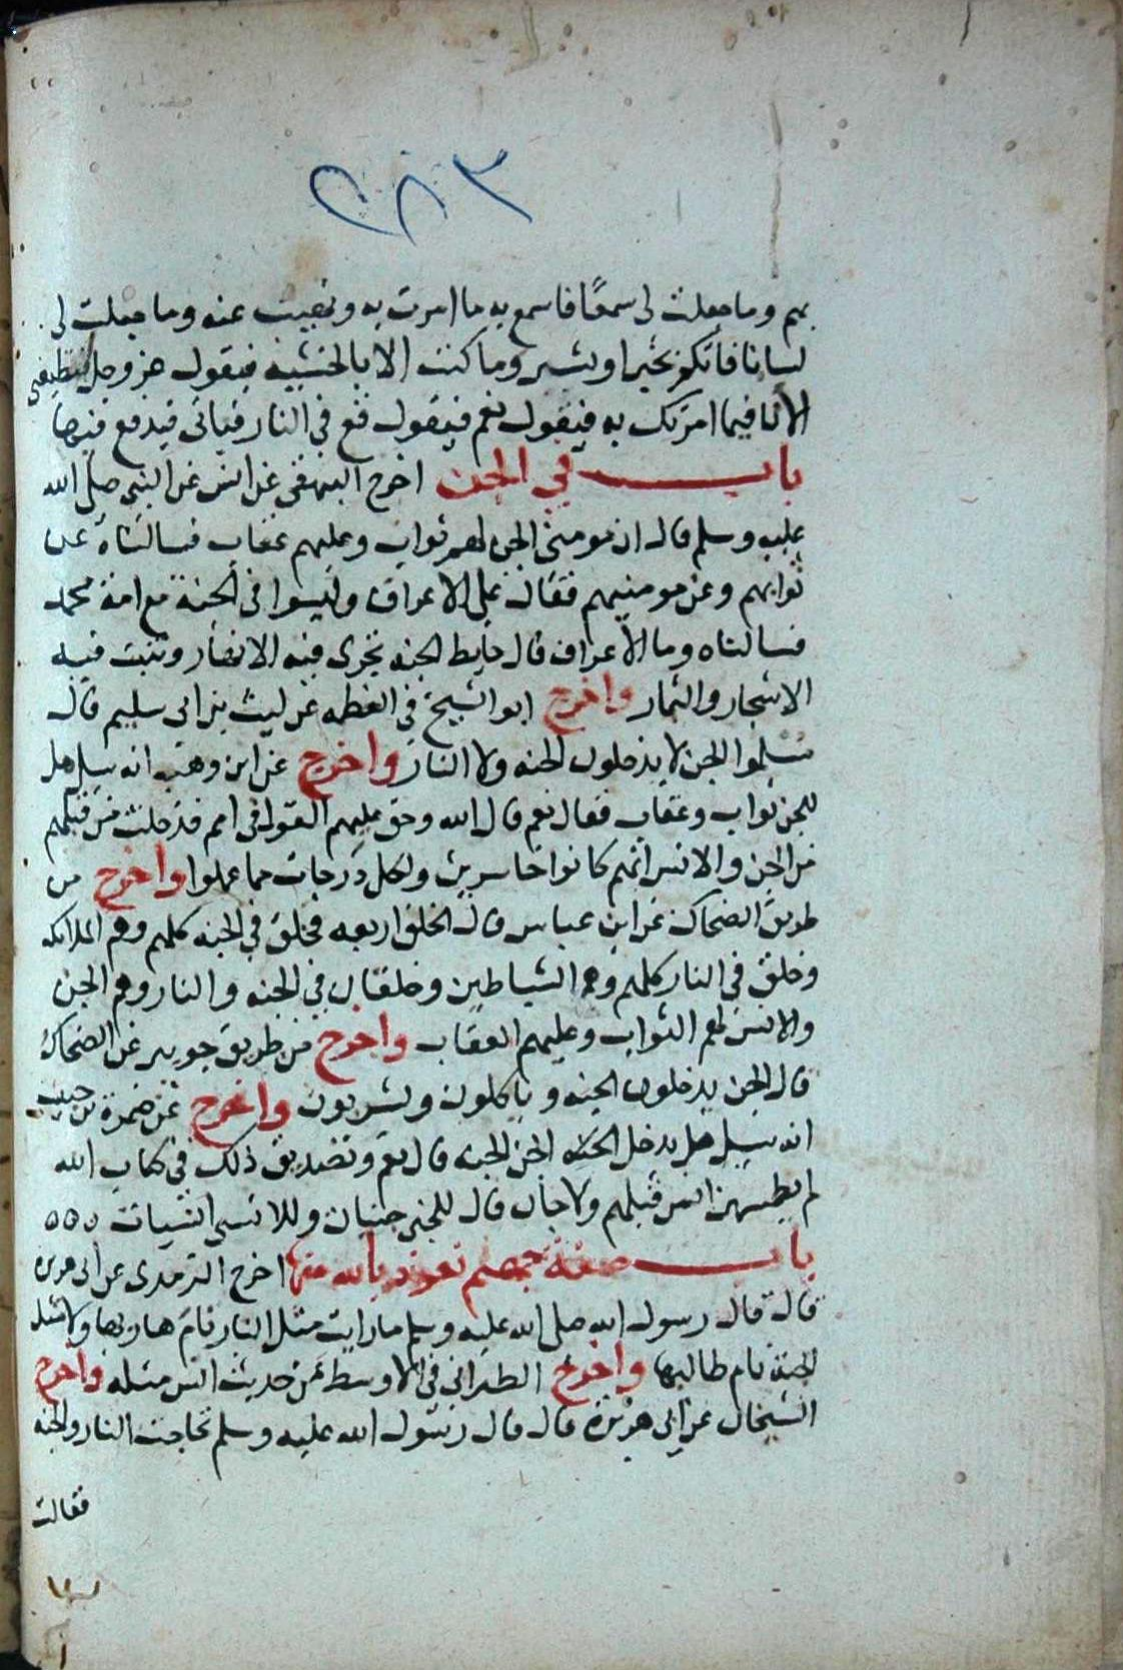 ٣٨٥
بهم وما جعلت لى سمعًا فاسمع به ما امرت به ونهيت عنه وما جعلت لى
لسانا فاتكلم بخير او بشر وما كنت الا بالخشيه فيقول عز وجل
الا انا فيما امرتك به فيقول نعم فيقول قع في النار فياتى فيدفع فيها
باب في الجن اخرج البيهقى عن انس عن النبى صلى الله
عليه وسلم قال ان مومنى الجن لهم ثواب وعليهم عقاب فسالناه عن
ثوابهم وعن مومنيهم فقال على الاعراف وليسوا فى الجنة مع امة محمد
فسالناه وما الاعراف قال حايط الجنه تجرى فيه الانهار وتنبت فيه
الاشجار والثمار واخرج ابو الشيخ في العظمه عن ليث بن ابى سليم قال
مسلموا الجن لا يدخلون الجنه ولا النار واخرج عن ابن وهب انه سيل هل
للجن ثواب وعقاب فقال نعم قال الله وحق عليهم القول فى امم قد خلت من قبلهم
من الجن والانس انهم كانوا خاسرين ولكل درجات مما عملوا واخرج من
طريق الضحاك عن ابن عباس قال الخلق اربعه فخلق في الجنه كلهم وهم الملائكه
وخلق في النار كلهم وهم الشياطين وخلقان في الجنه والنار وهم الجن
والانس لهم الثواب وعليهم العقاب واخرج من طريق جويبر عن الضحاك
قال الجن يدخلون الجنه وياكلون ويشربون واخرج عن ضمرة بن حبيب
انه سيل هل يدخل الجن الجنه قال نعم وتصديق ذلك في كتاب الله
لم يطمثهن انس قبلهم ولا جان قال للجنى جنيات وللانسى انسيات ٥٥٥
باب صفة جهنم نعوذ بالله منها اخرج الترمدى عن ابى هريرة
قال قال رسول الله صلى الله عليه وسلم ما رايت مثل النار نام هاربها ولا مثل
الجنة نام طالبها واخرج الطبرانى فى الاوسط من حديث انس مثله واخرج
الشيخان عن ابى هريرة قال قال رسول الله عليه وسلم تحاجت النار والجنه
فقالت